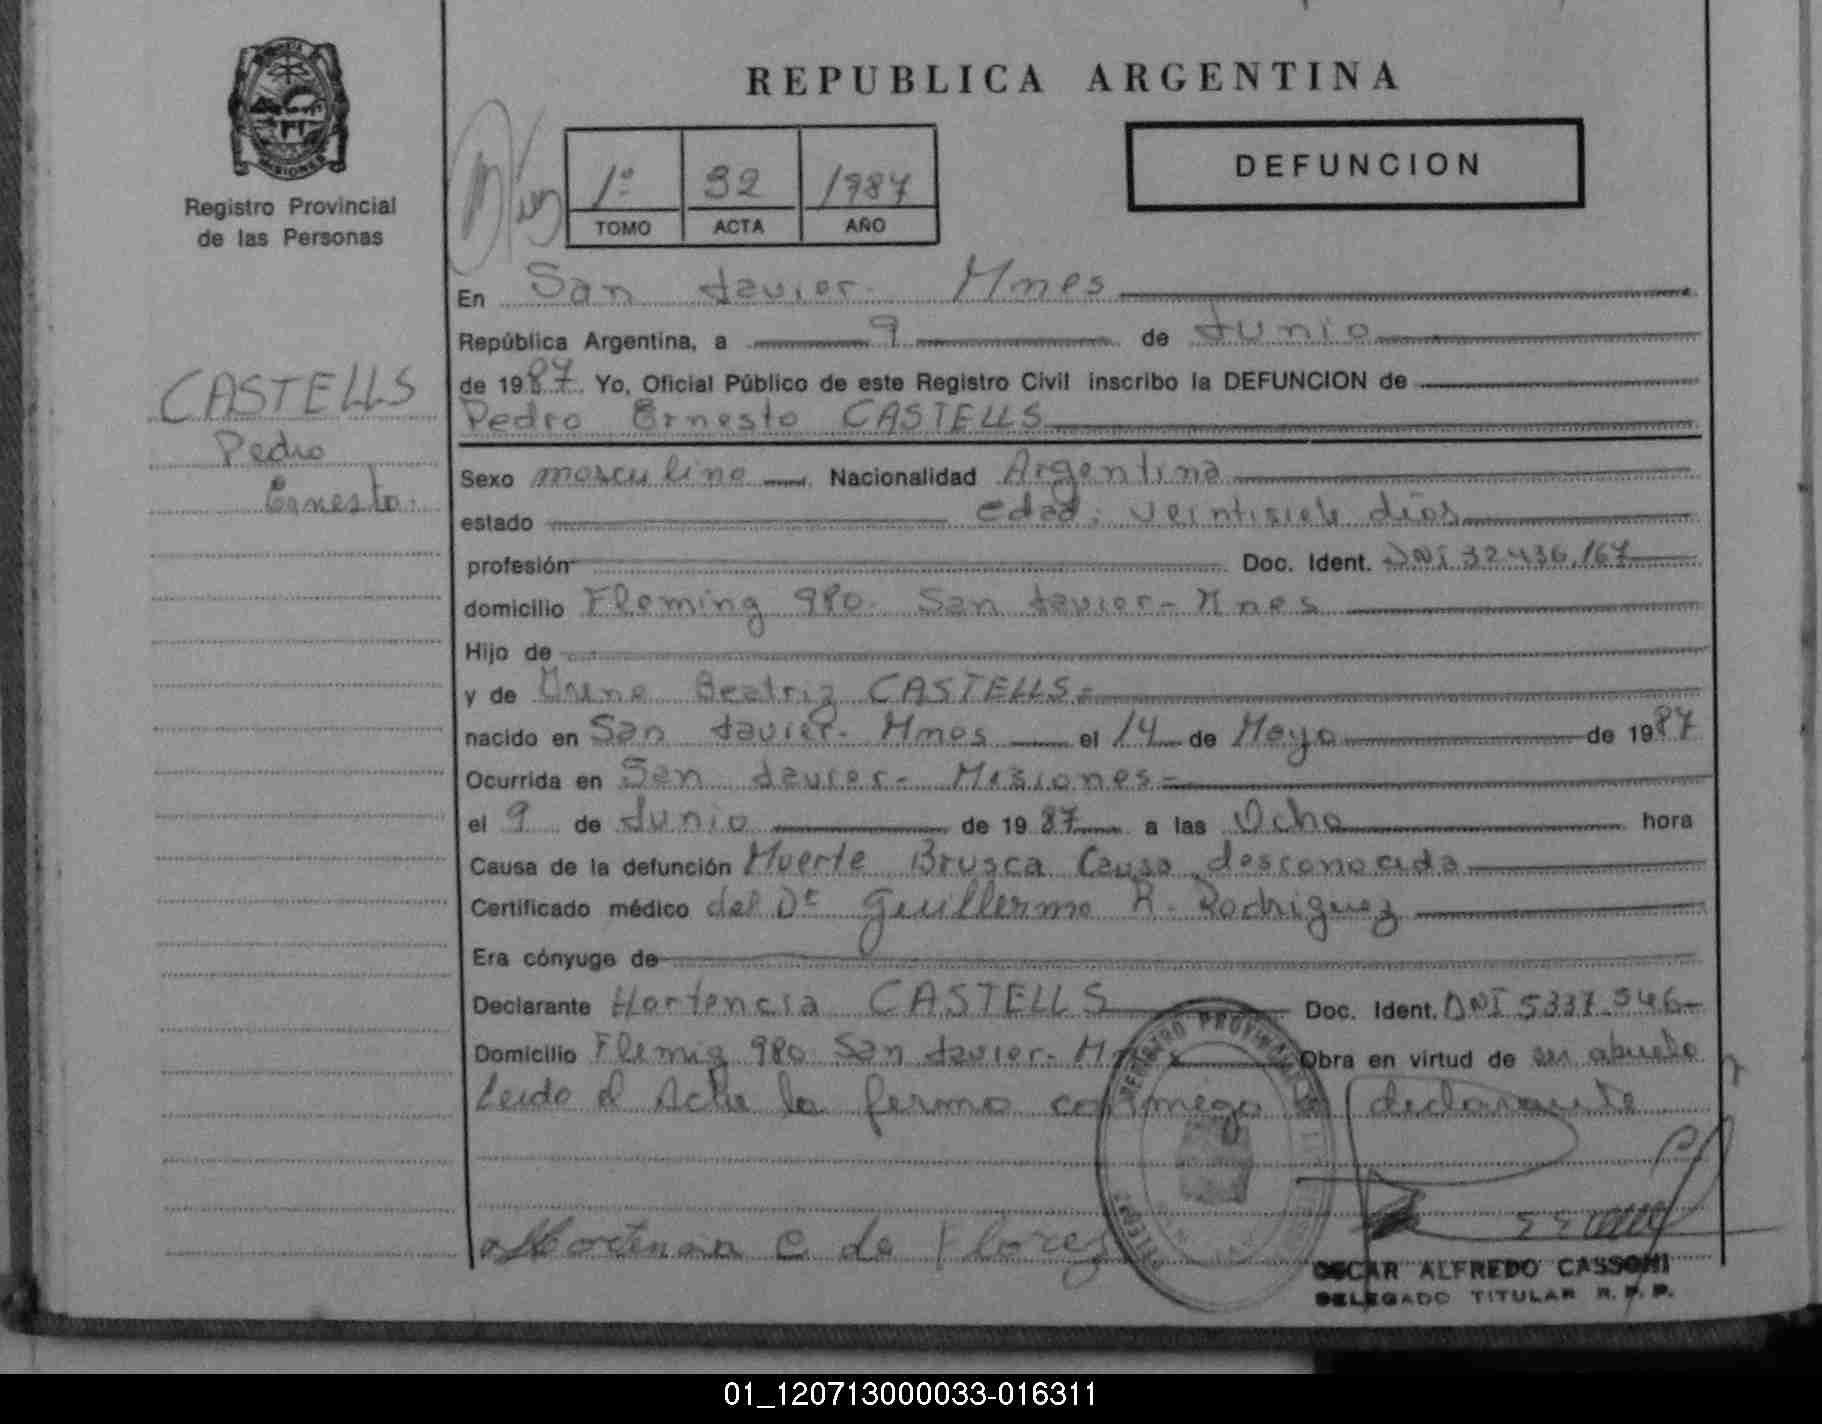 REPUBLICA ARGENTINA
MISIONES
Registro Provincial
de las Personas
1º 32 1987
TOMO ACTA AÑO
DEFUNCION
CASTELLS
Pedro
Ernesto.
En San Javier. Mnes
República Argentina, a 9 de Junio
de 1987. Yo, Oficial Público de este Registro Civil inscribo la DEFUNCION de
Pedro Ernesto CASTELLS
Sexo masculino Nacionalidad Argentina
estado edad: veintisiete días
profesión Doc. Ident. DNI 32.436.167
domicilio Fleming 980. San Javier- Mnes
Hijo de
y de Irene Beatriz CASTELLS.=
nacido en San Javier- Mnes el 14 de Mayo de 1987
Ocurrida en San Javier- Misiones=
el 9 de Junio de 1987 a las Ocho hora
Causa de la defunción Muerte Brusca Causa desconocida
Certificado médico del Dr Guillermo R. Rodriguez
Era cónyuge de
Declarante Hortencia CASTELLS Doc. Ident. DNI 5337.546-
Domicilio Flemig 980 San Javier- Obra en virtud de ser abuela
Leida el Acta la firma conmigo la declarante
REGISTRO PROVINCIAL
Hortencia C de Florez
OSCAR ALFREDO CASSONI
DELEGADO TITULAR R. P. P.
01_120713000033-016311